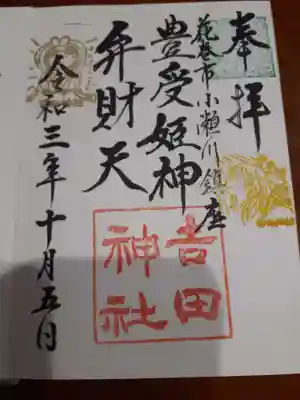 奉拝
花巻市小瀬川鎮座
豊受姫神
弁財天
令和三年十月五日
吉田
神社